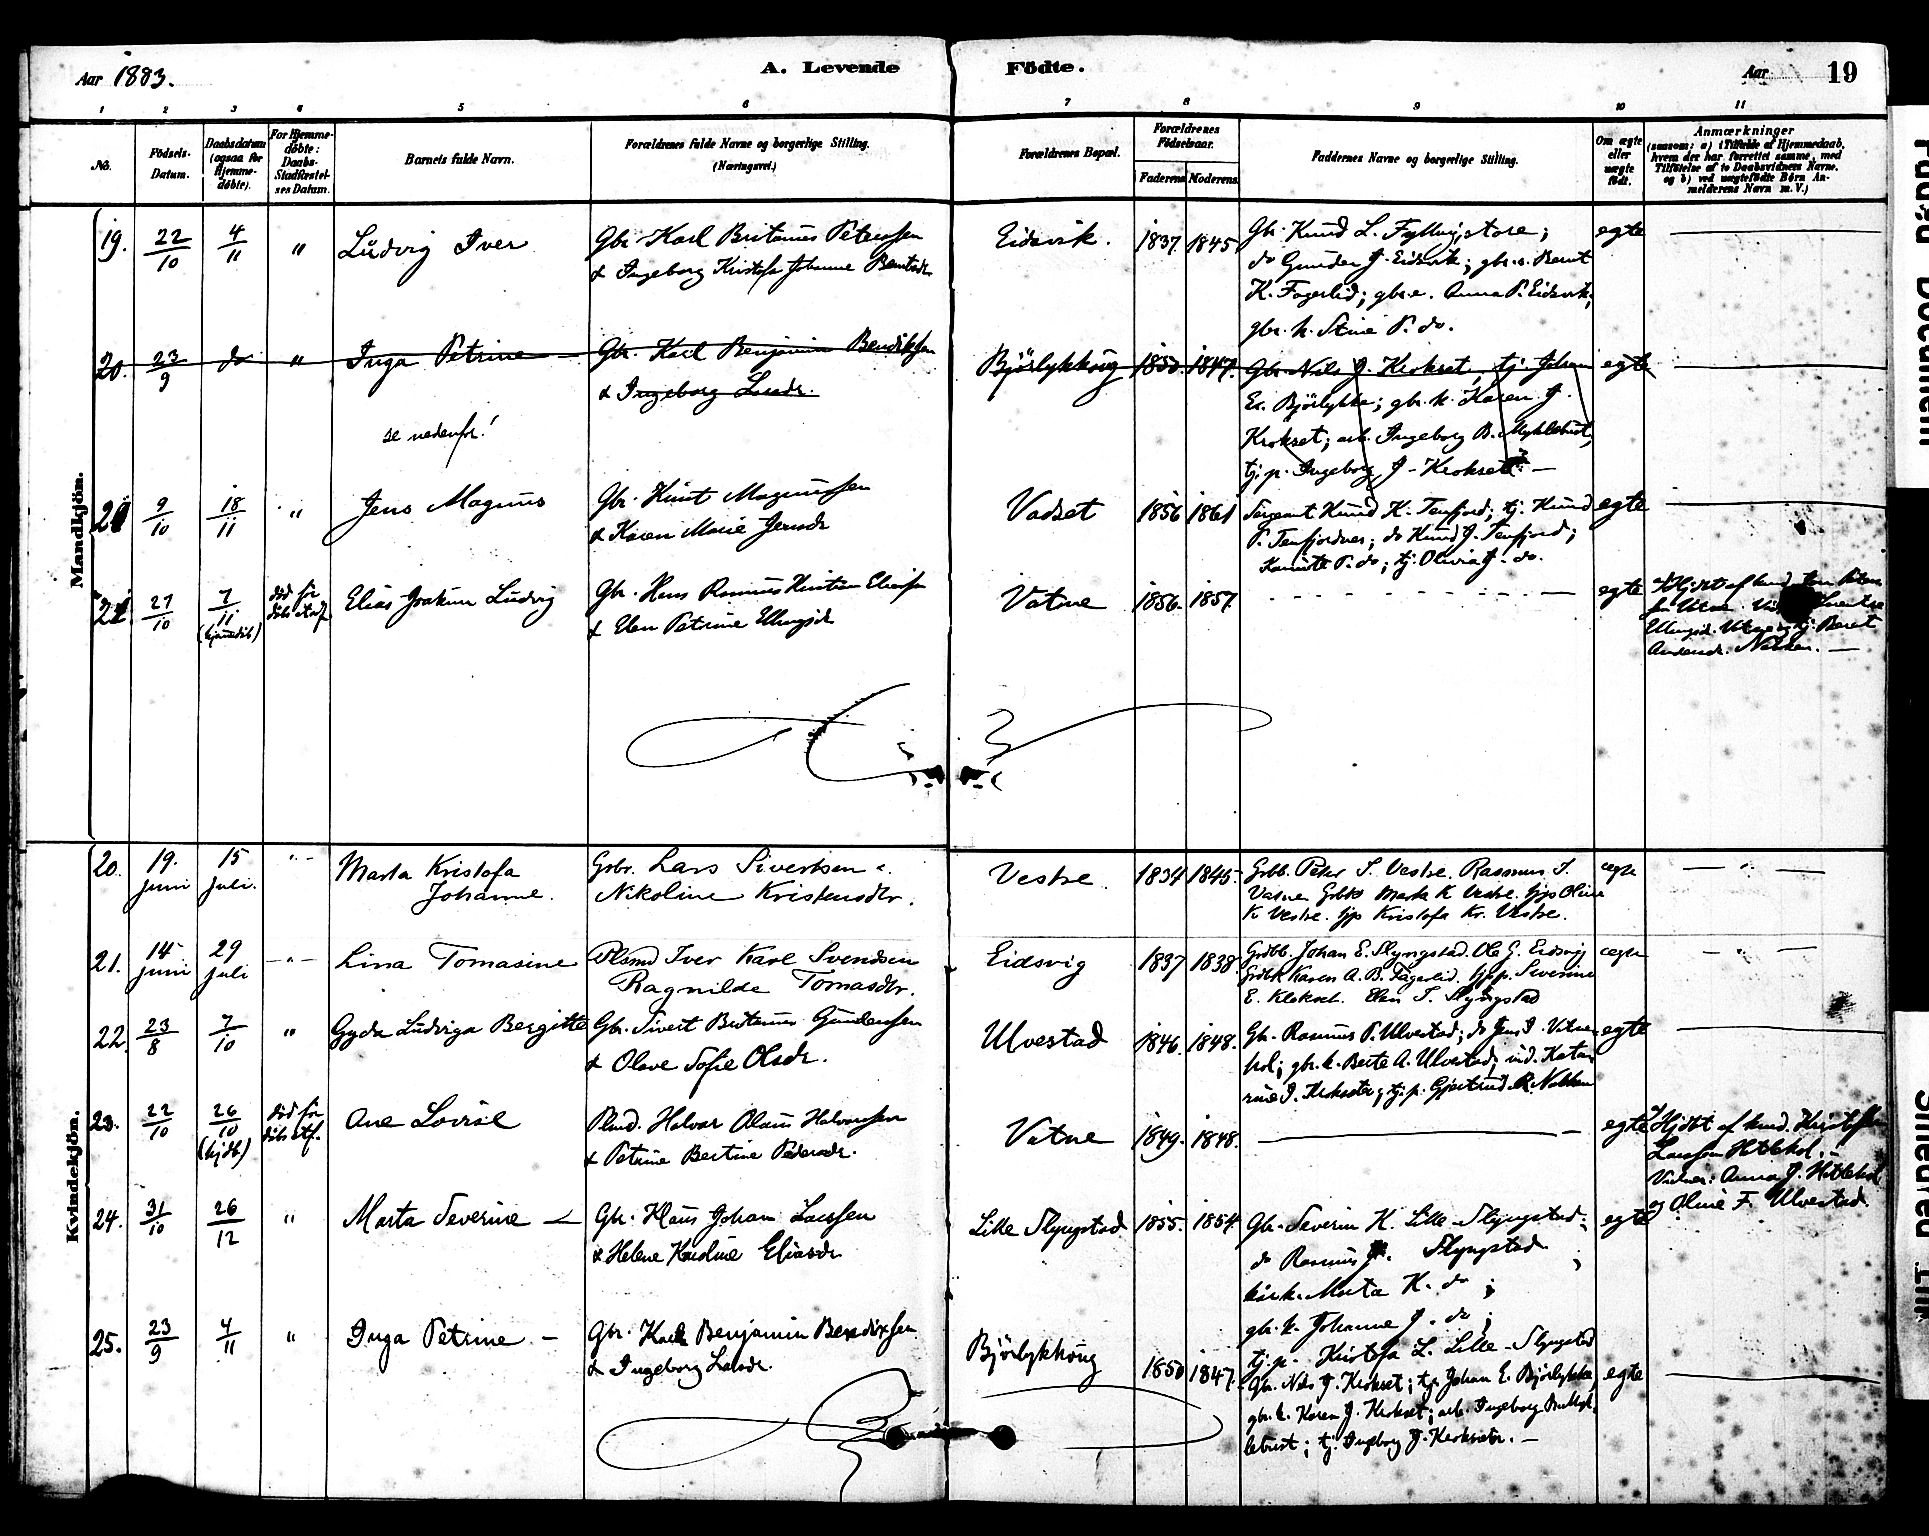 Aar 1883.
A. Levende Födte.
Aar 19
1 2 3 4 5 6 7 8 9 10 11
No.
Födsels-Datum.
Daabsdatum (ogsaa for Hjemme-döbte).
For Hjemme-döbte: Daabs-Stadfæstel-ses Datum.
Barnets fulde Navn.
Forældrenes fulde Navne og borgerlige Stilling. (Næringsvei.)
Forældrenes Bopæl.
Forældrenes Födselsaar.
Faderens Moderens
Faddernes Navne og borgerlige Stilling.
Om ægte eller uægte födt.
Anmærkninger
(saasom: a) i Tilfælde af Hjemmedaab, hvem der har forrettet samme, med Tilföielse af to Daabsvidners Navne, og b) ved uægtefödte Börn An-melderens Navn m. V.)
Mandkjön.
19. 22/10 4/11 " Ludvig Iver
Gbr. Karl Britanus Peterssen
& Ingeborg Kristofa Johanne Berntsdr
Eidsvik. 1837 1845
Gbr. Knud L. Fylling, store;
do Gunder J. Eidsvik; gbr.s. Bernt
K. Fagerlid; gbr.e. Anna P. Eidsvik;
gbr. k. Stine P. do.
egte
20. 23/9 do " Inga Petrine
Gbr. Karl Benjamin Bendiksen
& Ingeborg Larsdr.
se nedenfor!
Björlykhoug 1850 1847.
Gbr. Nils J. Krokset, tj. Johan
E. Björlykke; gbr. k. Karen J.
Krokset; arb. Ingeborg B. Myklebust,
tj.p. Ingeborg J. Krokset.
egte
21 9/10 18/11 " Jens Magnus
Gbr. Knut Magnussen
& Karen Marie Jensdr
Vadset 1856 1861
Sergeant Knud K. Tenfjord; tj. Knud
P. Tenfjordnes; do Knud J. Tenfjord;
P. do; tj. Olivia J. do.
egte
27/10 7/11 (hjemdöb) död för döb. stadf. Elias Joakim Ludvig
Gbr. Hans Rasmus Kristian Eliassen
& Elen Petrine Ellingsdr
Vatne 1856. 1857.
egte
Hjdöbt af kund.
Ellingsd. Vatne og tj. Beret
Andersdr. Nakken.
Kvindekjön.
20. 19. juni 15 juli. Marta Kristofa Johanne.
Grbr. Lars Sivertsen
Nikoline Kristensdtr.
Vestre. 1834 1845
Grbb. Peter S. Vestre. Rasmus S.
Vatne Grbks Marta K Vestre. tjps Oline
K Vestre. tjp Kristofa Kr. Vestre.
ægte
21. 14 juni 29 juli Lina Tomasine
Plsmd Iver Karl Svendsen
Ragnilde Tomasdtr.
Eidsvig 1837 1838
Grdbb. Johan E. Slyngstad. Ole G. Eidsvig
Grdbk Karen A. B. Fagerlid. tjpp. Severine
E. Klokset. Elen T. Slyngstad
ægte
22. 23/8 7/10 " Gyda Ludviga Bergitte
Gbr. Sivert Britanus Gundersen
& Olave Sofie Olsdr.
Ulvestad 1846. 1848.
Gbr. Rasmus P. Ulvestad; do Jens I. Vatne-
hol; gbr. k. Berte A. Ulvestad; vid. Kata-
rine I. Kroksæter; tj. p. Gjertrud R. Nakken
egte
23. 22/10 26/10 (hjdb) död för döb. stf. Ane Lovise
Plmd. Halvar Olaus Halvorssen
& Petrine Bertine Pedersdr.
Vatne 1849. 1848.
egte
Hjdbt af kund. Kristoffer
Larssen Hotlehol.
Vidner: Anna J. Hotlehol
og Oline F. Ulvestad
24. 31/10 26/12 " Marta Severine
Gbr. Klaus Johan Larssen
& Helene Karoline Eliasdr
Lille Slyngstad 1855. 1854.
Gbr. Severin K. Lille-Slyngstad;
do Rasmus J. Slyngstad;
k. Marta K. do;
gbr. k. Johanne J. do;
tj.p. Kristofa L. Lille-Slyngstad
egte
25. 23/9 4/11 " Inga Petrine
Gbr. Karl Benjamin Bendixsen
& Ingeborg Larsdr.
Björlykhoug 1850 1847.
Gbr. Nils J. Krokset; tj. Johan E. Björlykke
gbr. k. Karen J. Krokset; arb. Ingeborg B. Myk-
lebust; tj. Ingeborg J. Kroksæter.
egte